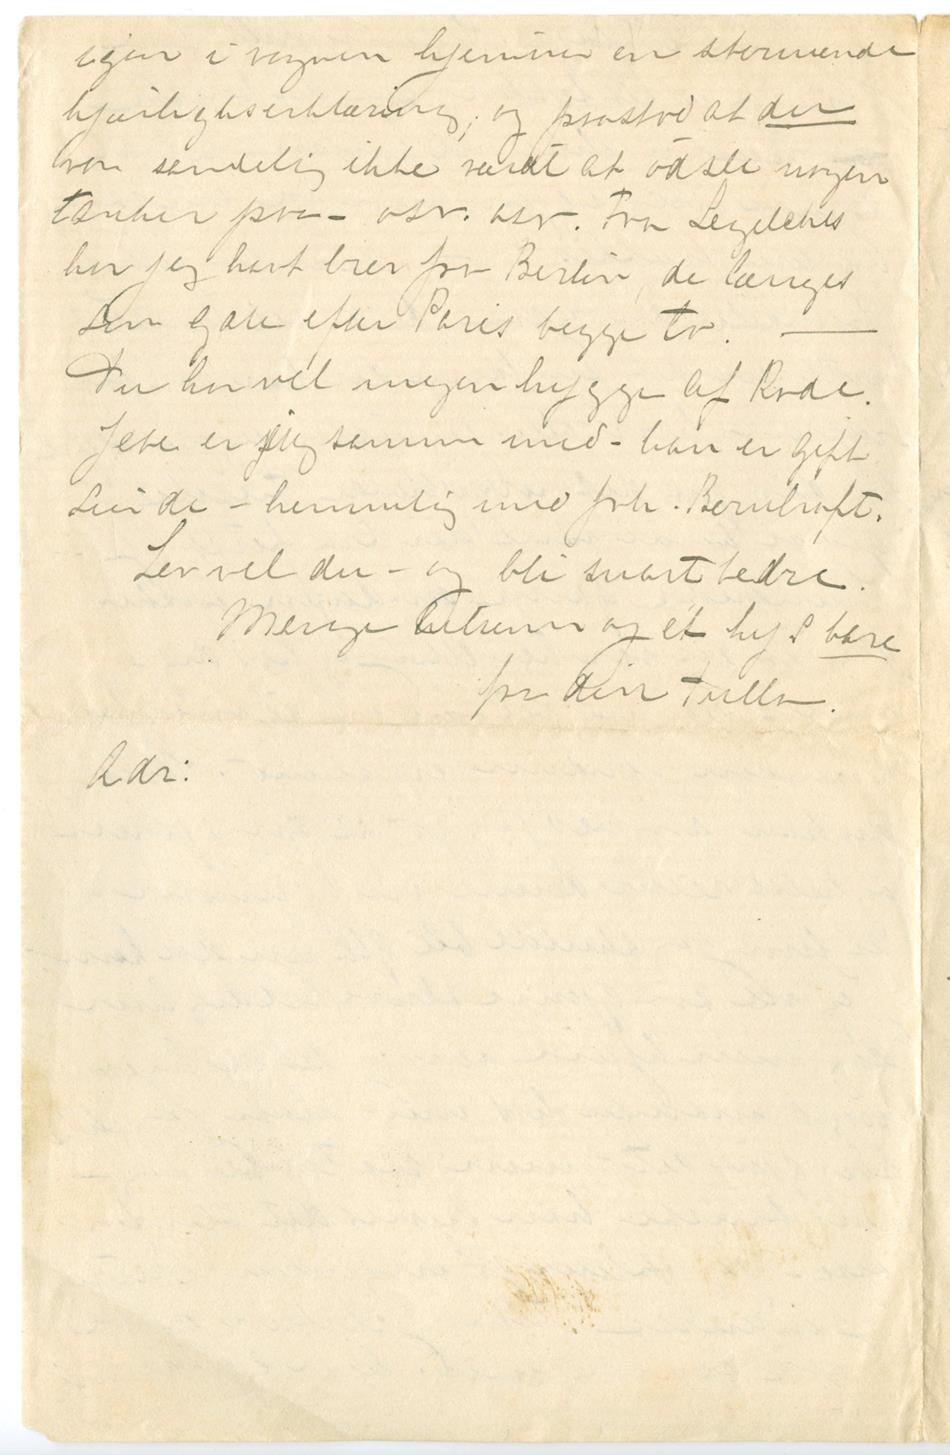 igjen i vognen hjemover en stormende
kjærlighetserklæring, og påstod at den
var sandelig ikke værdt at ødsle nogen
tanker på – osv. osv. Fra
har jeg havt brev fra Berlin, de længes
sin gale efter Paris begge to. —
Du har vel megen hygge af Rode.
er jeg sammen med – han er gift
– hemmelig med frk.
Lev vel du – og bli snart bedre.
Mange og et lys bare
fra din Tulla.
Adr: